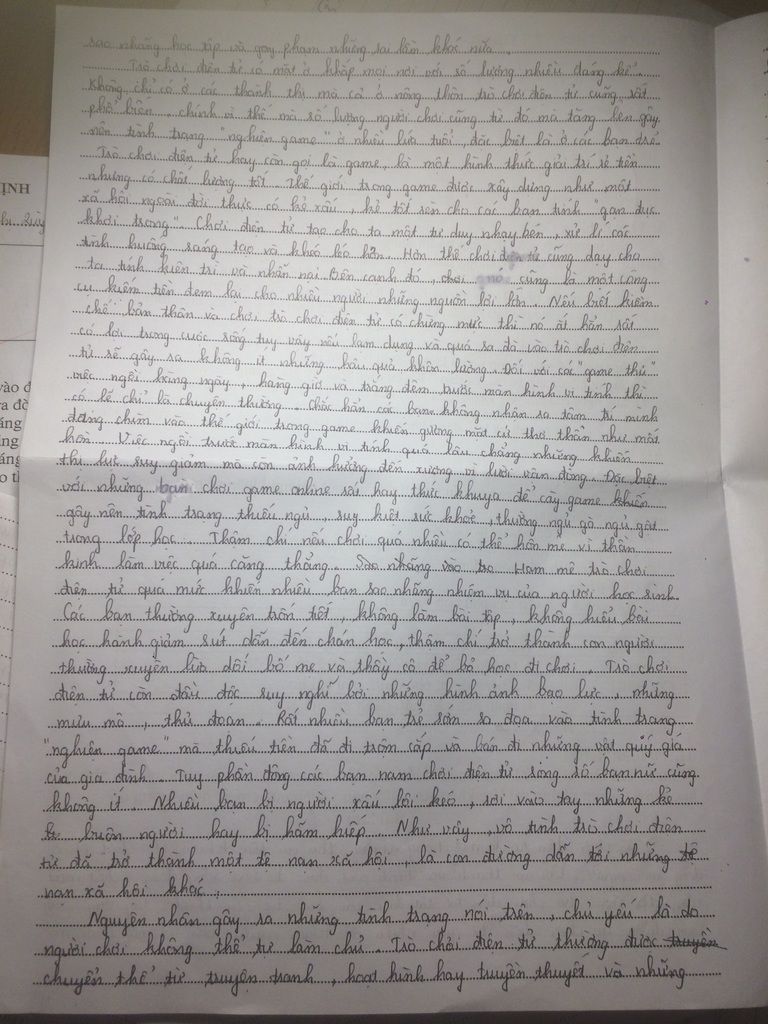 sao nhãng học tập và gây phạm những sai lầm khác nữa.
Trò chơi điện tử có mặt ở khắp mọi nơi với số lượng nhiều đáng kể.
Không chỉ có ở các thành thị mà cả ở nông thôn trò chơi điện tử cũng rất
phổ biến, chính vì thế mà số lượng người chơi cũng từ đó mà tăng lên gây
nên tình trạng "nghiện game" ở nhiều lứa tuổi, đặc biệt là ở các bạn trẻ.
Trò chơi điện tử hay còn gọi là game, là một hình thức giải trí rẻ tiền
nhưng có chất lượng tốt. Thế giới trong game được xây dựng như một
xã hội ngoài đời thực có kẻ xấu, kẻ tốt rèn cho các bạn tính "gạn đục
khơi trong". Chơi điện tử tạo cho ta một tư duy nhạy bén, xử lí các
tình huống sáng tạo và khéo léo hơn. Hơn thế chơi điện tử cũng dạy cho
ta tính kiên trì và nhẫn nại. Bên cạnh đó, chơi nó cũng là một công
cụ kiếm tiền đem lại cho nhiều người những nguồn lợi lớn. Nếu biết kiềm
chế bản thân và chơi trò chơi điện tử có chừng mực thì nó ắt hẳn rất
có lợi trong cuộc sống tuy vậy nếu lạm dụng và quá sa đà vào trò chơi điện
tử sẽ gây ra không ít những hậu quả khôn lường. Đối với các "game thủ"
việc ngồi hàng ngày, hàng giờ và trắng đêm trước màn hình vi tính thì
có lẽ chỉ là chuyện thường. Chắc hẳn các bạn không nhận ra tâm trí mình
đang chìm vào thế giới trong game khiến gương mặt cứ thơ thẩn như mất
hồn. Việc ngồi trước màn hình vi tính quá lâu chẳng những khiến
thị lực suy giảm mà còn ảnh hưởng đến xương vì lười vận động. Đặc biệt
với những bạn chơi game online rất hay thức khuya để cày game khiến
gây nên tình trạng thiếu ngủ, suy kiệt sức khoẻ, thường ngủ gà ngủ gật
trong lớp học. Thậm chí nếu chơi quá nhiều có thể hôn mê vì thần
kinh làm việc quá căng thẳng. Sao nhãng vào trò Ham mê trò chơi
điện tử quá mức khiến nhiều bạn sao nhãng nhiệm vụ của người học sinh.
Các bạn thường xuyên trốn tiết, không làm bài tập, không hiểu bài
học hành giảm sút dẫn đến chán học, thậm chí trở thành con người
thường xuyên lừa dối bố mẹ và thầy cô để bỏ học đi chơi. Trò chơi
điện tử còn đầu độc suy nghĩ bởi những hình ảnh bạo lực, những
mưu mô, thủ đoạn. Rất nhiều bạn trẻ sớm sa đoạ vào tình trạng
"nghiện game" mà thiếu tiền đã đi trộm cắp và bán đi những vật quý giá
của gia đình. Tuy phần đông các bạn nam chơi điện tử song số bạn nữ cũng
không ít. Nhiều bạn bị người xấu lôi kéo, rơi vào tay những kẻ
buôn người hay bị hãm hiếp. Như vậy, vô tình trò chơi điện
tử đã trở thành một tệ nạn xã hội, là con đường dẫn tới những tệ
nạn xã hội khác.
Nguyên nhân gây ra những tình trạng nói trên, chủ yếu là do
người chơi không thể tự làm chủ. Trò chơi điện tử thường được truyền
chuyển thể từ truyện tranh, hoạt hình hay truyền thuyết và những